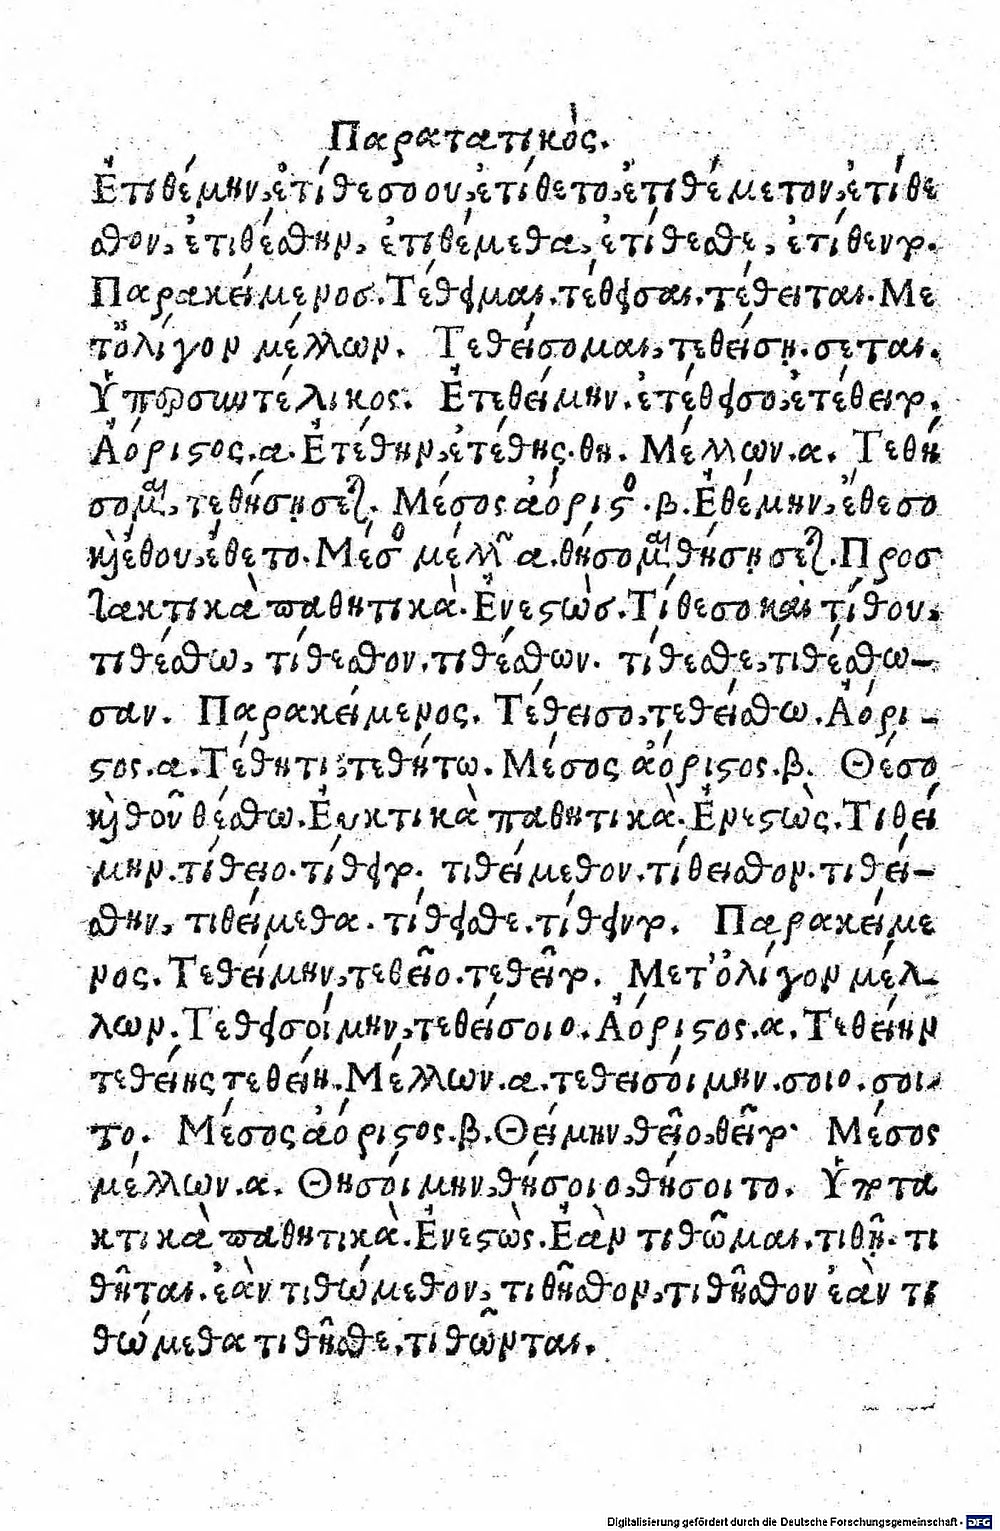 Παρατατικός.
Ἐτιθέμην, ἐτίθεσο ου, ἐτίθετο, ἐτιθέμετον, ἐτίθε
σθον, ἐτιθέσθην, ἐτιθέμεθα, ἐτίθεσθε, ἐτίθεντο.
Παρακείμενος. Τέθειμαι. τέθεισαι. τέθειται. Με
τ' ὀλίγον μέλλων. Τεθείσομαι, τεθείσῃ. σεται.
Ὑπερσυντέλικος. Ἐτεθείμην. ἐτέθεισο, ἐτέθειτο.
Ἀόριστος. α. Ἐτέθην, ἐτέθης. θη. Μέλλων. α. Τεθή
σομαι, τεθήσῃ σεται. Μέσος ἀόριστος. β. Ἐθέμην, ἔθεσο
καὶ ἔθου, ἔθετο. Μέσος μέλλων α. θήσομαι θήσῃ σεται. Προσ
τακτικὰ παθητικὰ. Ἐνεστὼς. Τίθεσο καὶ τίθου,
τιθέσθω, τίθεσθον, τιθέσθων. τίθεσθε, τιθέσθω-
σαν. Παρακείμενος. Τέθεισο, τεθείσθω. Ἀόρι-
στος. α. Τέθητι τεθήτω. Μέσος ἀόριστος. β. Θέσο
καὶ θοῦ θέσθω. Εὐκτικὰ παθητικὰ. Ἐνεστὼς. Τιθεί
μην. τίθειο. τίθειτο. τιθείμεθον. τίθεισθον. τιθεί-
σθην, τιθείμεθα. τίθεισθε. τίθειντο. Παρακείμε
νος. Τεθείμην, τεθεῖο. τεθεῖτο. Μετ' ὀλίγον μέλ-
λων. Τεθεισοίμην, τεθείσοιο. Ἀόριστος. α. Τεθείην
τεθείης τεθείη. Μέλλων. α. τεθεισοίμην. σοιο. σοι-
το. Μέσος ἀόριστος. β. Θείμην, θεῖο, θεῖτο· Μέσος
μέλλων. α. Θησοίμην, θήσοιο, θήσοιτο. Ὑποτα
κτικὰ παθητικὰ. Ἐνεστὼς. Ἐὰν τιθῶμαι. τιθῇ. τι
θῆται. ἐὰν τιθώμεθον, τιθῆσθον, τιθῆσθον ἐὰν τι
θώμεθα τιθῆσθε. τιθῶνται.
Digitalisierung gefördert durch die Deutsche Forschungsgemeinschaft - DFG